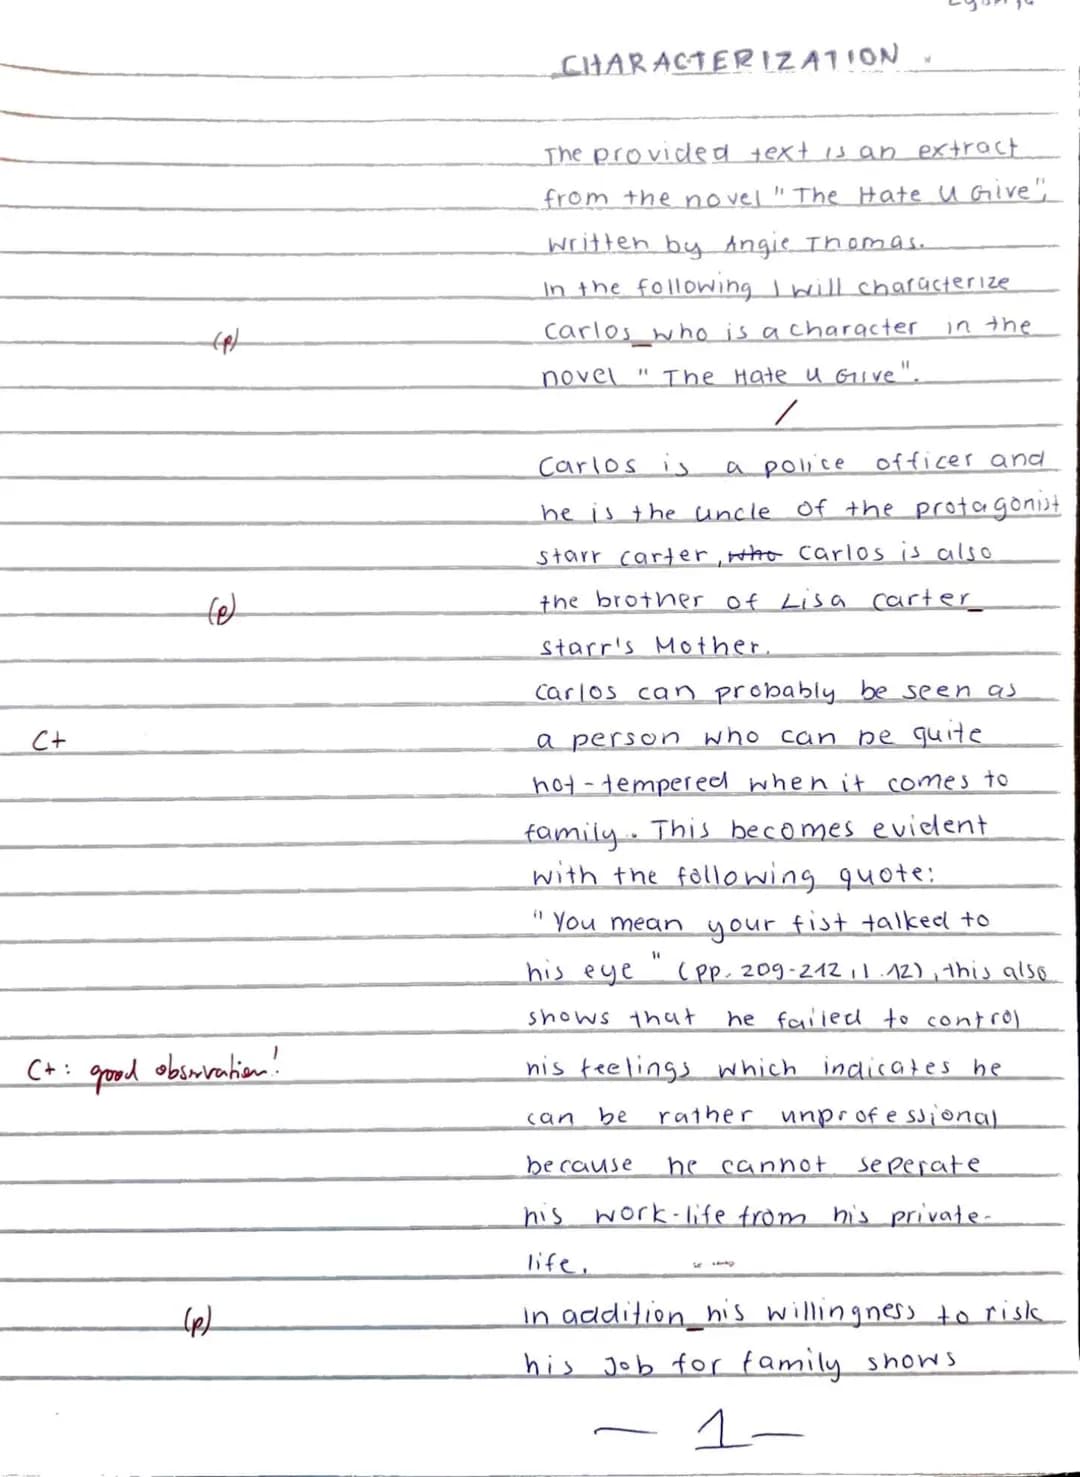 CHARACTERIZATION.
The provided text is an extract
from the novel "The Hate U Give",
written by Angie Thomas.
In the following I will characterize
(p) Carlos_who is a character in the
novel "The Hate U Give".
/
Carlos is a police officer and
he is the uncle of the protagonist
starr carter, who carlos is also
(p) the brother of Lisa Carter_
starr's Mother.
Carlos can probably be seen as
C+ a person who can be quite
hot-tempered when it comes to
family. This becomes evident
with the following quote:
"You mean your fist talked to
his eye" (pp. 209-212, l.12), this also
shows that he failed to control
C+: good observation! his feelings which indicates he
can be rather unprofessional
because he cannot seperate
his work-life from his private-
life.
(p) In addition_his willingness to risk
his Job for family shows
— 1 —